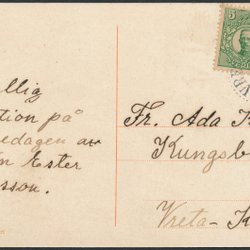 llig
tion på
edagen av
n Ester
sson.
5
Fr. Ada
Kungsb
Vreta-K